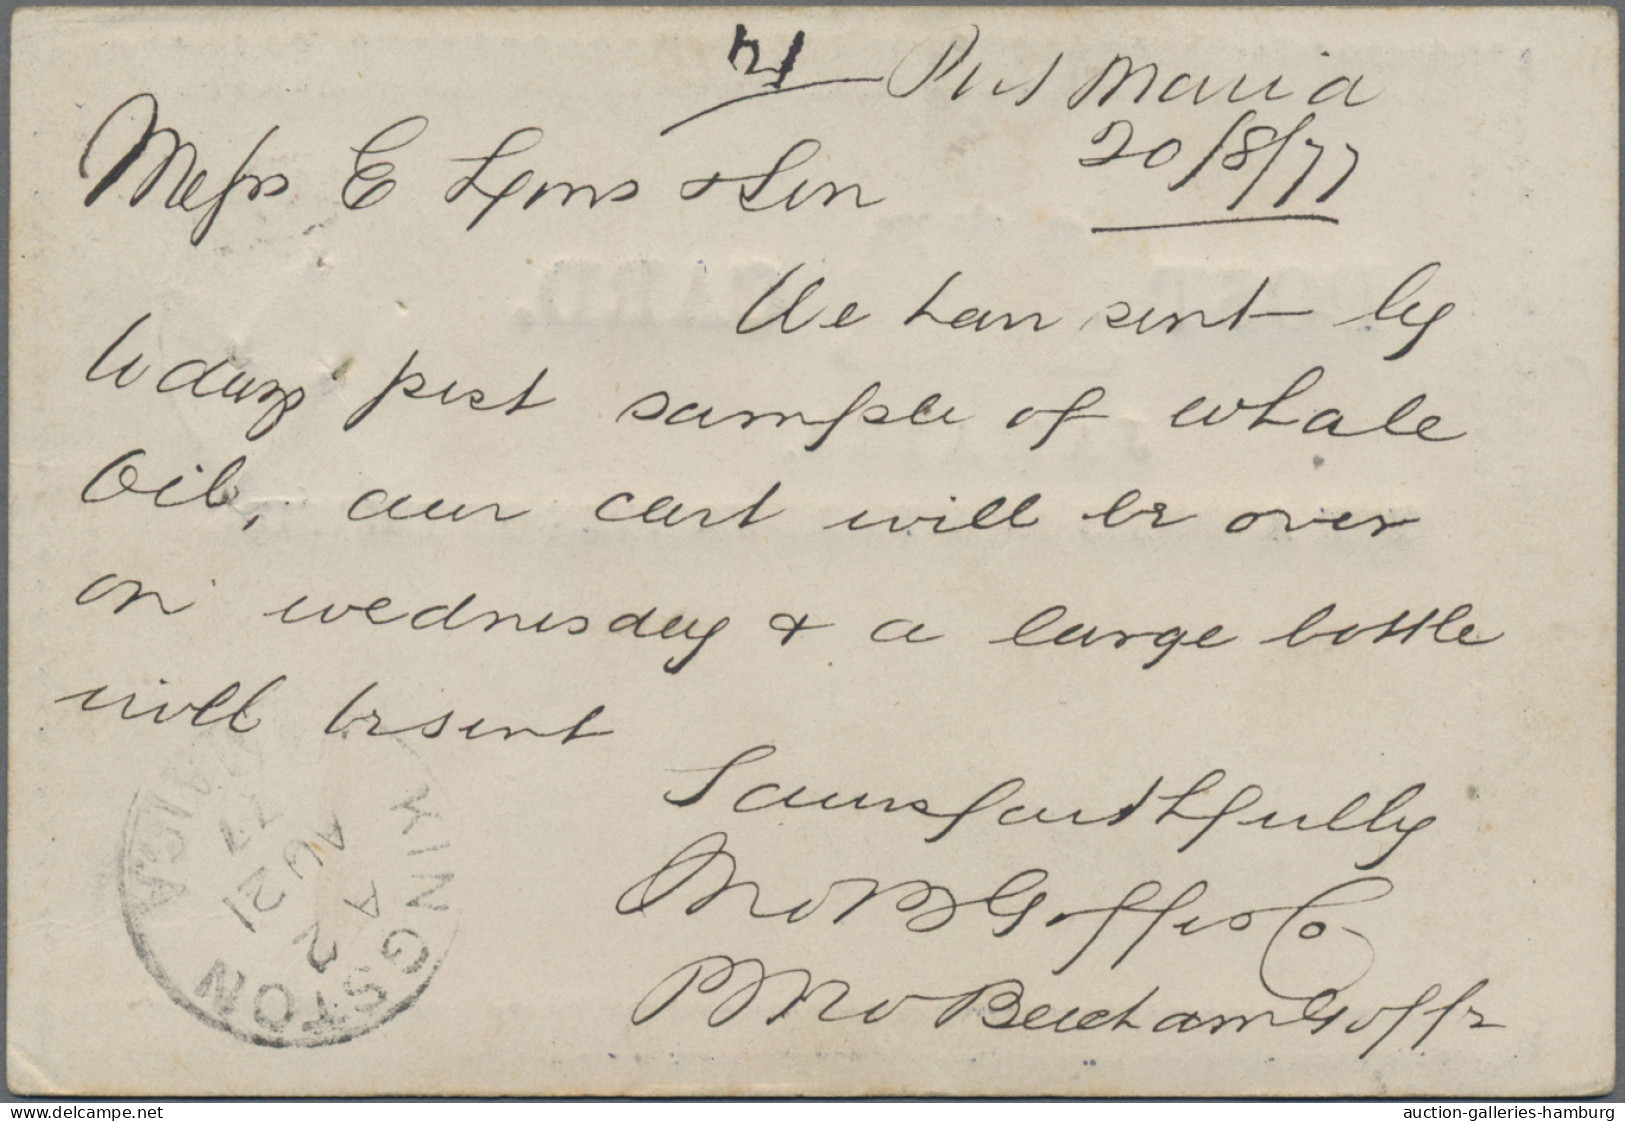 21 Port Maria
20/8/77
Messrs E Lyons & Son
We have sent by
to days post sample of whale
Oil, our cart will be over
on wednesday & a large bottle
will be sent
Yours faithfully
Goffe & Co
Beecham Goffe
KINGSTON JAMAICA
2
A
AU 21
77
delcampe.net
auction-galleries-hamburg